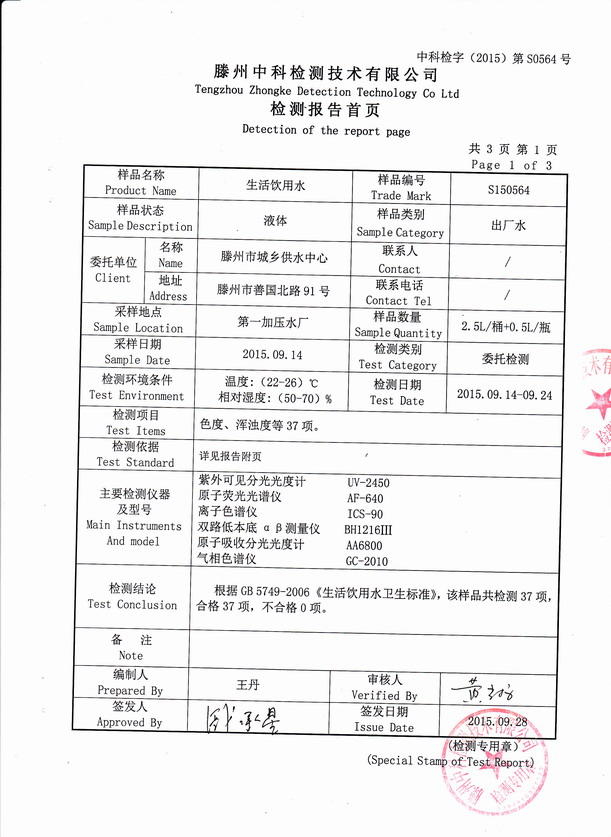 中科检字（2015）第 S0564 号
滕州中科检测技术有限公司
Tengzhou Zhongke Detection Technology Co Ltd
检测报告首页
Detection of the report page
共 3 页 第 1 页
Page 1 of 3
样品名称
Product Name
生活饮用水
样品编号
Trade Mark
S150564
样品状态
Sample Description
液体
样品类别
Sample Category
出厂水
委托单位
Client
名称
Name
滕州市城乡供水中心
联系人
Contact
/
地址
Address
滕州市善国北路 91 号
联系电话
Contact Tel
/
采样地点
Sample Location
第一加压水厂
样品数量
Sample Quantity
2.5L/桶+0.5L/瓶
采样日期
Sample Date
2015.09.14
检测类别
Test Category
委托检测
检测环境条件
Test Environment
温度：（22-26）℃
相对湿度：（50-70）%
检测日期
Test Date
2015.09.14-09.24
检测项目
Test Items
色度、浑浊度等 37 项。
检测依据
Test Standard
详见报告附页
主要检测仪器
及型号
Main Instruments
And model
紫外可见分光光度计 UV-2450
原子荧光光谱仪 AF-640
离子色谱仪 ICS-90
双路低本底 αβ测量仪 BH1216Ⅲ
原子吸收分光光度计 AA6800
气相色谱仪 GC-2010
检测结论
Test Conclusion
根据 GB 5749-2006《生活饮用水卫生标准》，该样品共检测 37 项，
合格 37 项，不合格 0 项。
备 注
Note
编制人
Prepared By
王丹
审核人
Verified By
签发人
Approved By
签发日期
Issue Date
2015.09.28
（检测专用章）
(Special Stamp of Test Report)